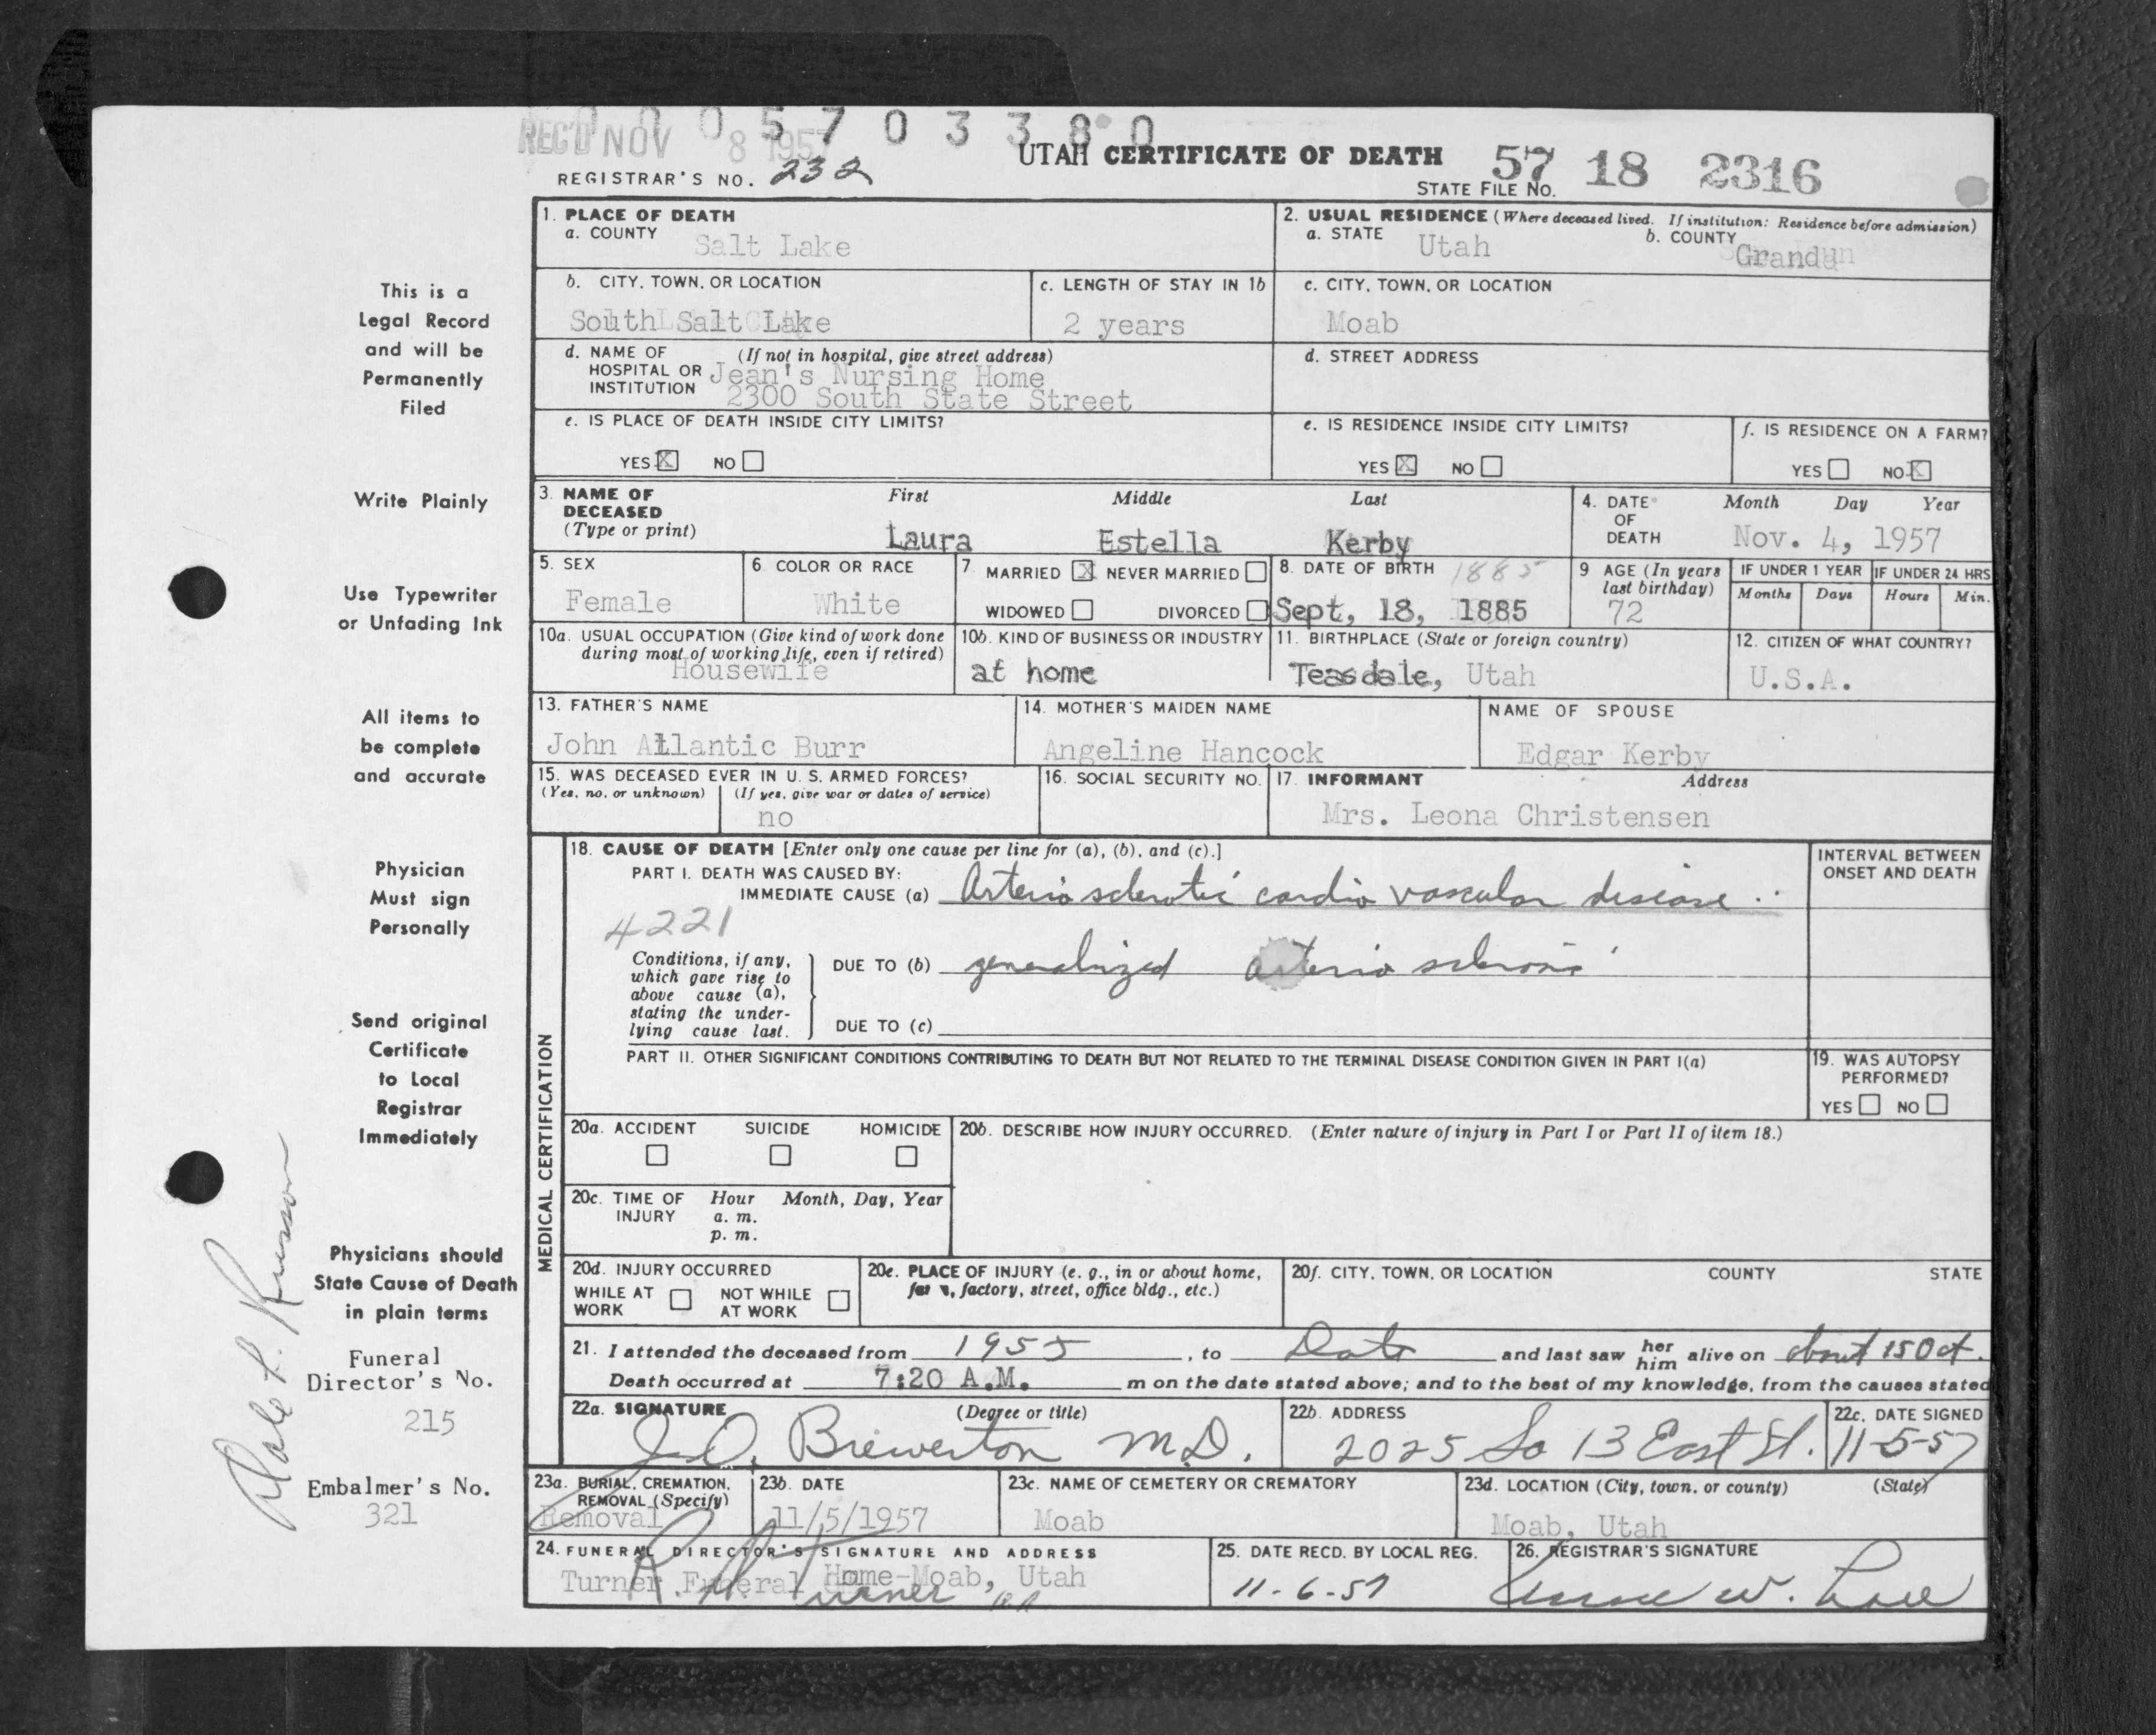 0 0 0 5 7 0 3 3 8 0
REC'D NOV 8 1957
UTAH CERTIFICATE OF DEATH
REGISTRAR'S NO. 232
STATE FILE NO. 57 18 2316
1. PLACE OF DEATH
a. COUNTY Salt Lake
2. USUAL RESIDENCE (Where deceased lived. If institution: Residence before admission)
a. STATE Utah b. COUNTY Grand
b. CITY, TOWN, OR LOCATION South Salt Lake
c. LENGTH OF STAY IN 1b 2 years
c. CITY, TOWN, OR LOCATION Moab
d. NAME OF HOSPITAL OR INSTITUTION (If not in hospital, give street address)
Jean's Nursing Home
2300 South State Street
d. STREET ADDRESS
e. IS PLACE OF DEATH INSIDE CITY LIMITS?
YES X NO
e. IS RESIDENCE INSIDE CITY LIMITS?
YES X NO
f. IS RESIDENCE ON A FARM?
YES NO X
3. NAME OF DECEASED (Type or print)
First Middle Last
Laura Estella Kerby
4. DATE OF DEATH Month Day Year
Nov. 4, 1957
5. SEX Female
6. COLOR OR RACE White
7. MARRIED X NEVER MARRIED
WIDOWED DIVORCED
8. DATE OF BIRTH 1885
Sept, 18, 1885
9 AGE (In years last birthday) 72
IF UNDER 1 YEAR Months Days
IF UNDER 24 HRS Hours Min.
10a. USUAL OCCUPATION (Give kind of work done during most of working life, even if retired)
Housewife
10b. KIND OF BUSINESS OR INDUSTRY
at home
11. BIRTHPLACE (State or foreign country)
Teasdale, Utah
12. CITIZEN OF WHAT COUNTRY?
U.S.A.
13. FATHER'S NAME
John Atlantic Burr
14. MOTHER'S MAIDEN NAME
Angeline Hancock
NAME OF SPOUSE
Edgar Kerby
15. WAS DECEASED EVER IN U. S. ARMED FORCES?
(Yes, no, or unknown) (If yes, give war or dates of service)
no
16. SOCIAL SECURITY NO.
17. INFORMANT Address
Mrs. Leona Christensen
MEDICAL CERTIFICATION
18. CAUSE OF DEATH [Enter only one cause per line for (a), (b), and (c).]
INTERVAL BETWEEN ONSET AND DEATH
PART I. DEATH WAS CAUSED BY:
IMMEDIATE CAUSE (a) Arterio sclerotic cardio vascular disease
4221
Conditions, if any, which gave rise to above cause (a), stating the underlying cause last.
DUE TO (b) generalized arterio sclerosis
DUE TO (c)
PART II. OTHER SIGNIFICANT CONDITIONS CONTRIBUTING TO DEATH BUT NOT RELATED TO THE TERMINAL DISEASE CONDITION GIVEN IN PART I(a)
19. WAS AUTOPSY PERFORMED?
YES NO
20a. ACCIDENT SUICIDE HOMICIDE
20b. DESCRIBE HOW INJURY OCCURRED. (Enter nature of injury in Part I or Part II of item 18.)
20c. TIME OF INJURY Hour Month, Day, Year
a. m.
p. m.
20d. INJURY OCCURRED
WHILE AT WORK NOT WHILE AT WORK
20e. PLACE OF INJURY (e. g., in or about home, farm, factory, street, office bldg., etc.)
20f. CITY, TOWN, OR LOCATION COUNTY STATE
21. I attended the deceased from 1955, to Date and last saw her him alive on about 15 Oct.
Death occurred at 7:20 A.M. m on the date stated above; and to the best of my knowledge, from the causes stated
22a. SIGNATURE (Degree or title)
J. O. Brewerton M.D.
22b. ADDRESS
2025 So 13 East St.
22c. DATE SIGNED
11-5-57
23a. BURIAL, CREMATION, REMOVAL (Specify)
Removal
23b. DATE
11/5/1957
23c. NAME OF CEMETERY OR CREMATORY
Moab
23d. LOCATION (City, town, or county) (State)
Moab, Utah
24. FUNERAL DIRECTOR'S SIGNATURE AND ADDRESS
Turner Funeral Home-Moab, Utah
Turner
25. DATE RECD. BY LOCAL REG.
11-6-57
26. REGISTRAR'S SIGNATURE
This is a
Legal Record
and will be
Permanently
Filed
Write Plainly
Use Typewriter
or Unfading Ink
All items to
be complete
and accurate
Physician
Must sign
Personally
Send original
Certificate
to Local
Registrar
Immediately
Physicians should
State Cause of Death
in plain terms
Funeral
Director's No.
215
Embalmer's No.
321